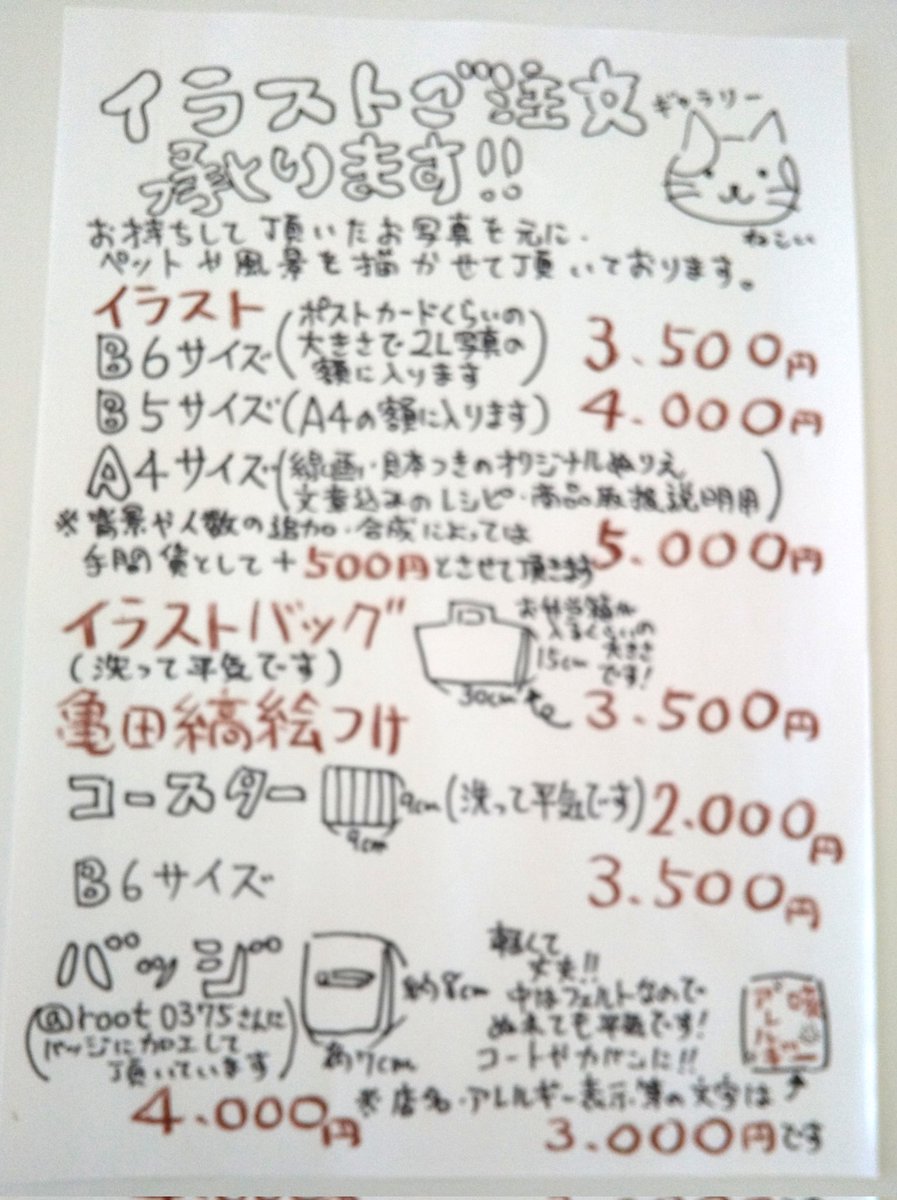 イラストご注文
承ります!!
ギャラリー
ねこい
お持ちして頂いたお写真を元に、
ペットや風景を描かせて頂いております。
イラスト
B6サイズ(ポストカードくらいの
大きさで2L写真の
額に入ります) 3.500円
B5サイズ(A4の額に入ります) 4.000円
A4サイズ(線画・見本つきのオリジナルぬりえ
文章込みのレシピ・商品取扱説明用)
5.000円
※背景や人数の追加・合成によっては
手間賃として+500円とさせて頂きます
イラストバッグ
(洗って平気です)
お弁当箱が
入るくらいの
大きさ
です!
15cm
30cm
3.500円
亀田縞絵つけ
コースター 9cm 9cm (洗って平気です) 2.000円
B6サイズ 3.500円
バッジ
(@root0375さんに
バッジに加工して
頂いています)
約8cm
約7cm
4.000円
軽くて
丈夫!!
中はフェルトなので
ぬれても平気です!
コートやカバンに!!
アレルギー
※店名・アレルギー表示等の文字は
3.000円です